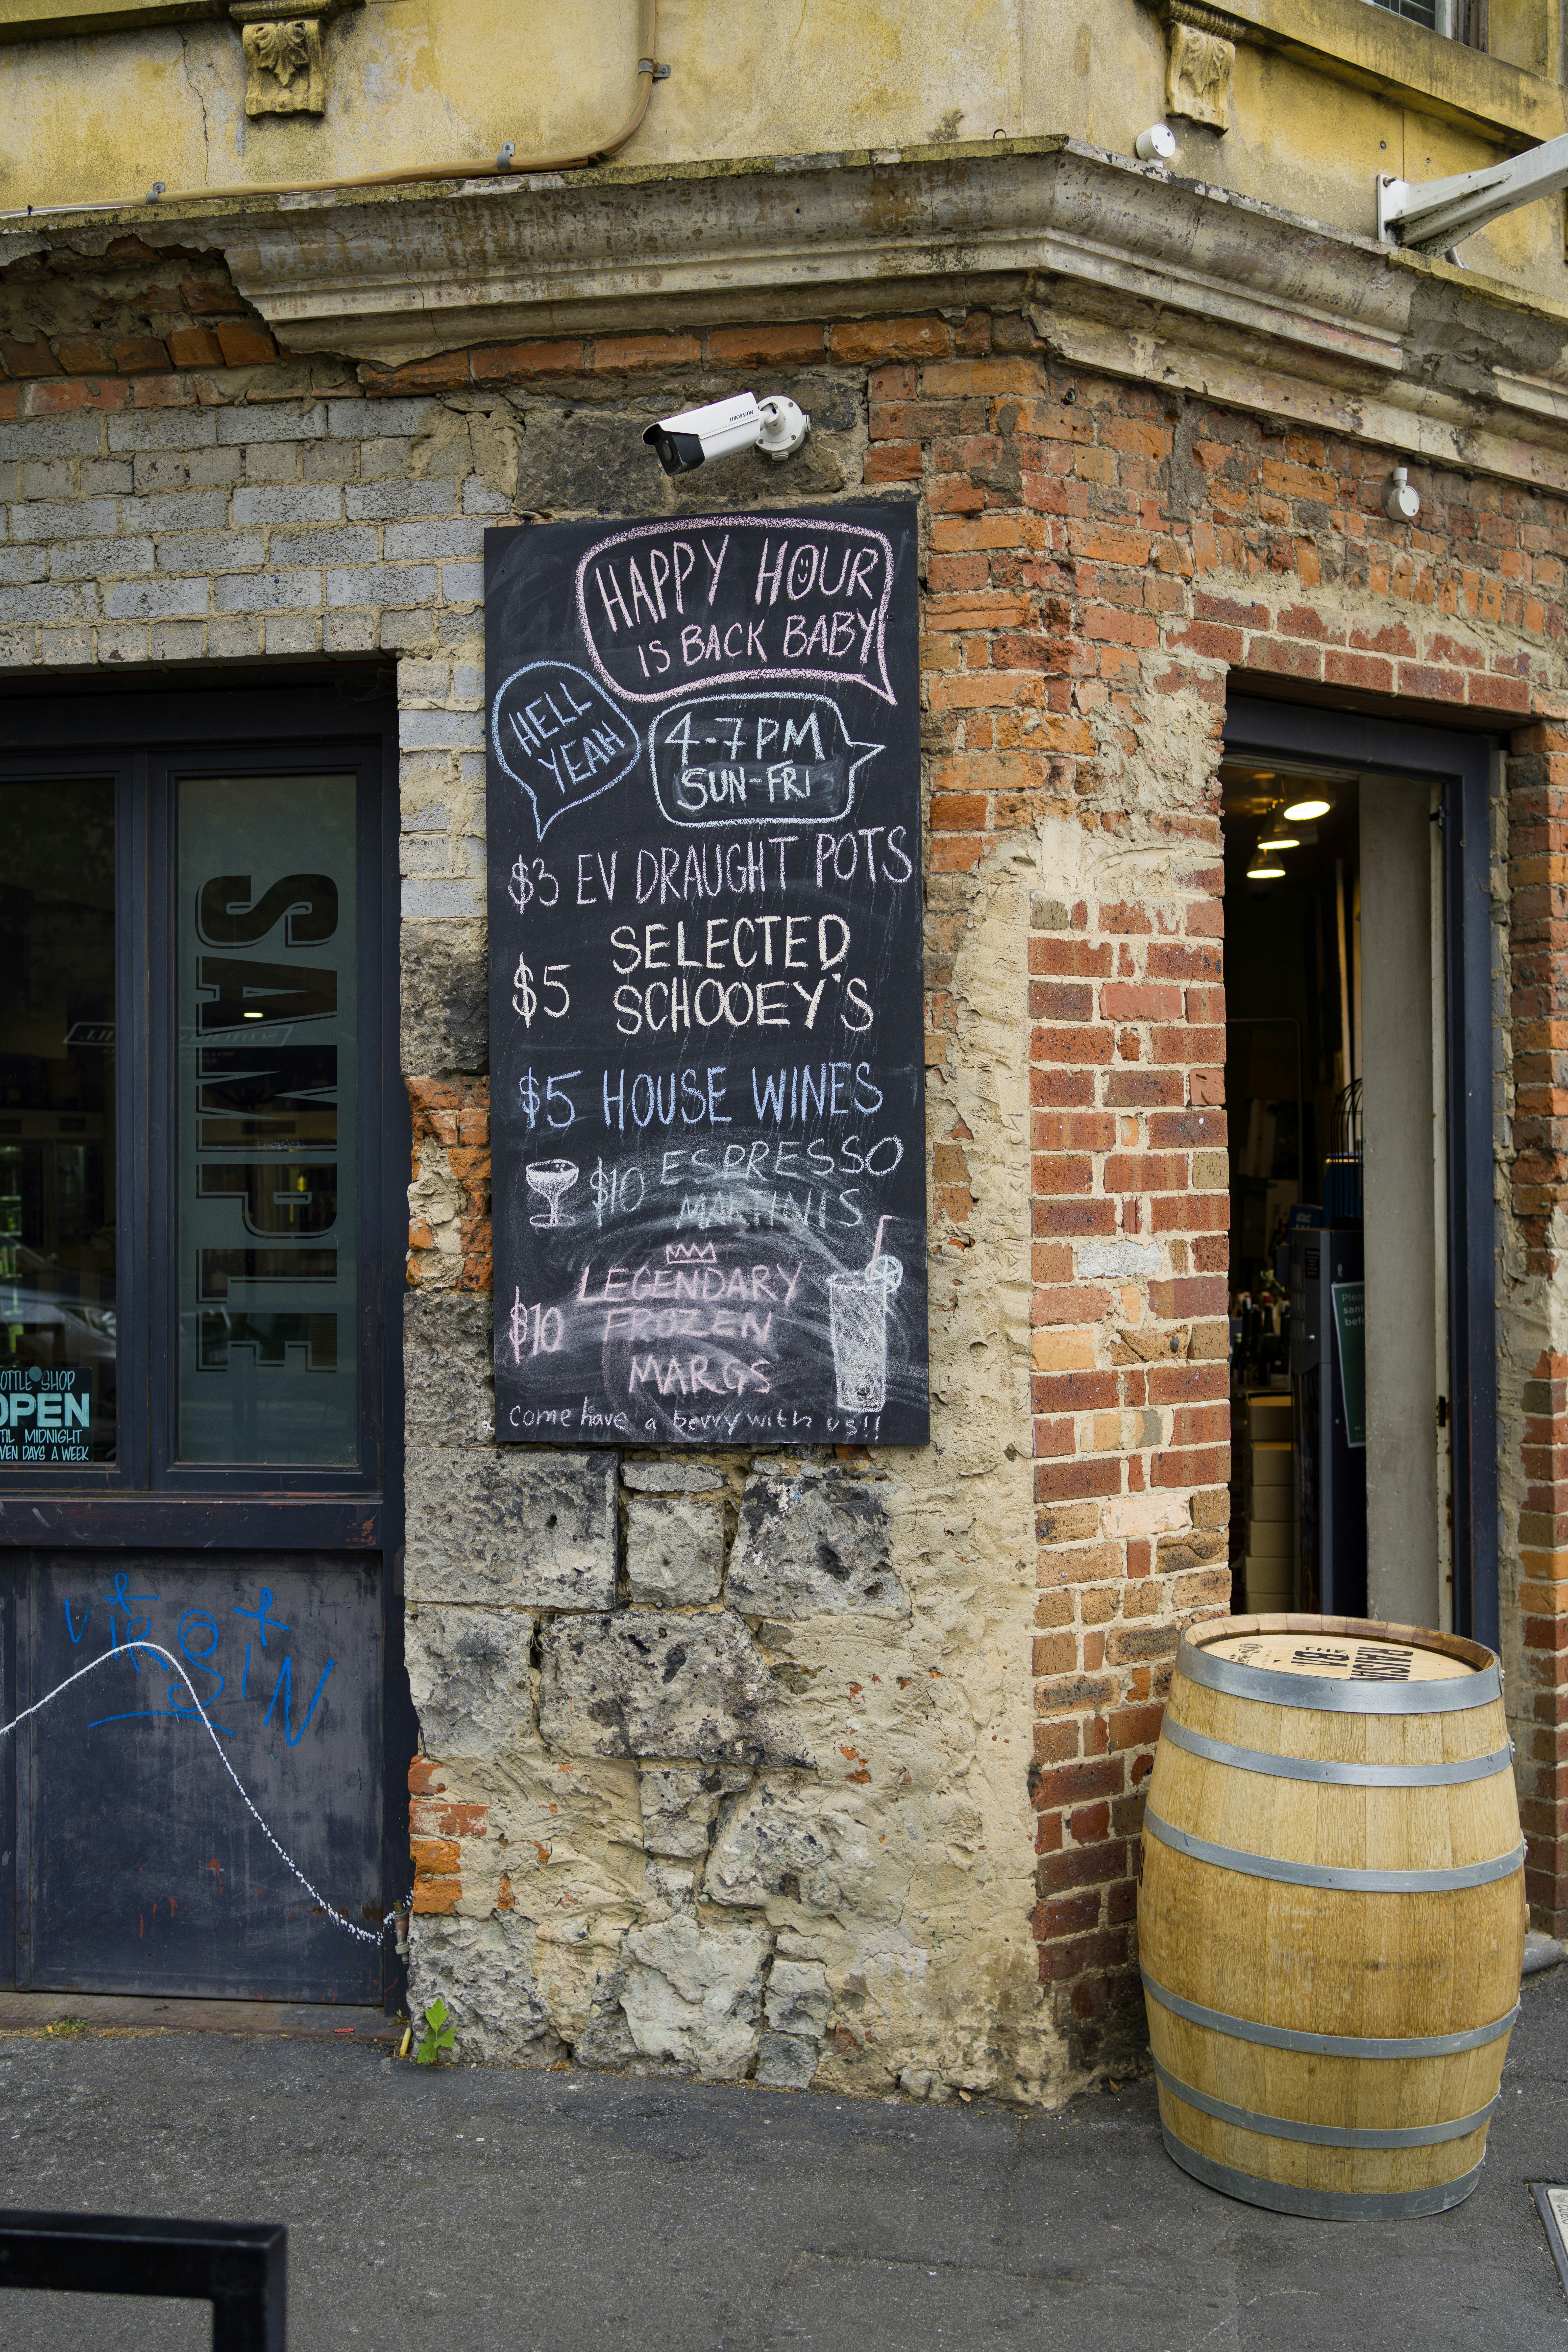 HIKVISION
HAPPY HOUR
IS BACK BABY
HELL
YEAH
4-7PM
SUN-FRI
$3 EV DRAUGHT POTS
$5 SELECTED
SCHOOEY'S
$5 HOUSE WINES
$10 ESPRESSO
MARTINIS
LEGENDARY
$10 FROZEN
MARGS
come have a bevvy with us!!
SAMPLE
OTTLE SHOP
OPEN
TIL MIDNIGHT
VEN DAYS A WEEK
THE